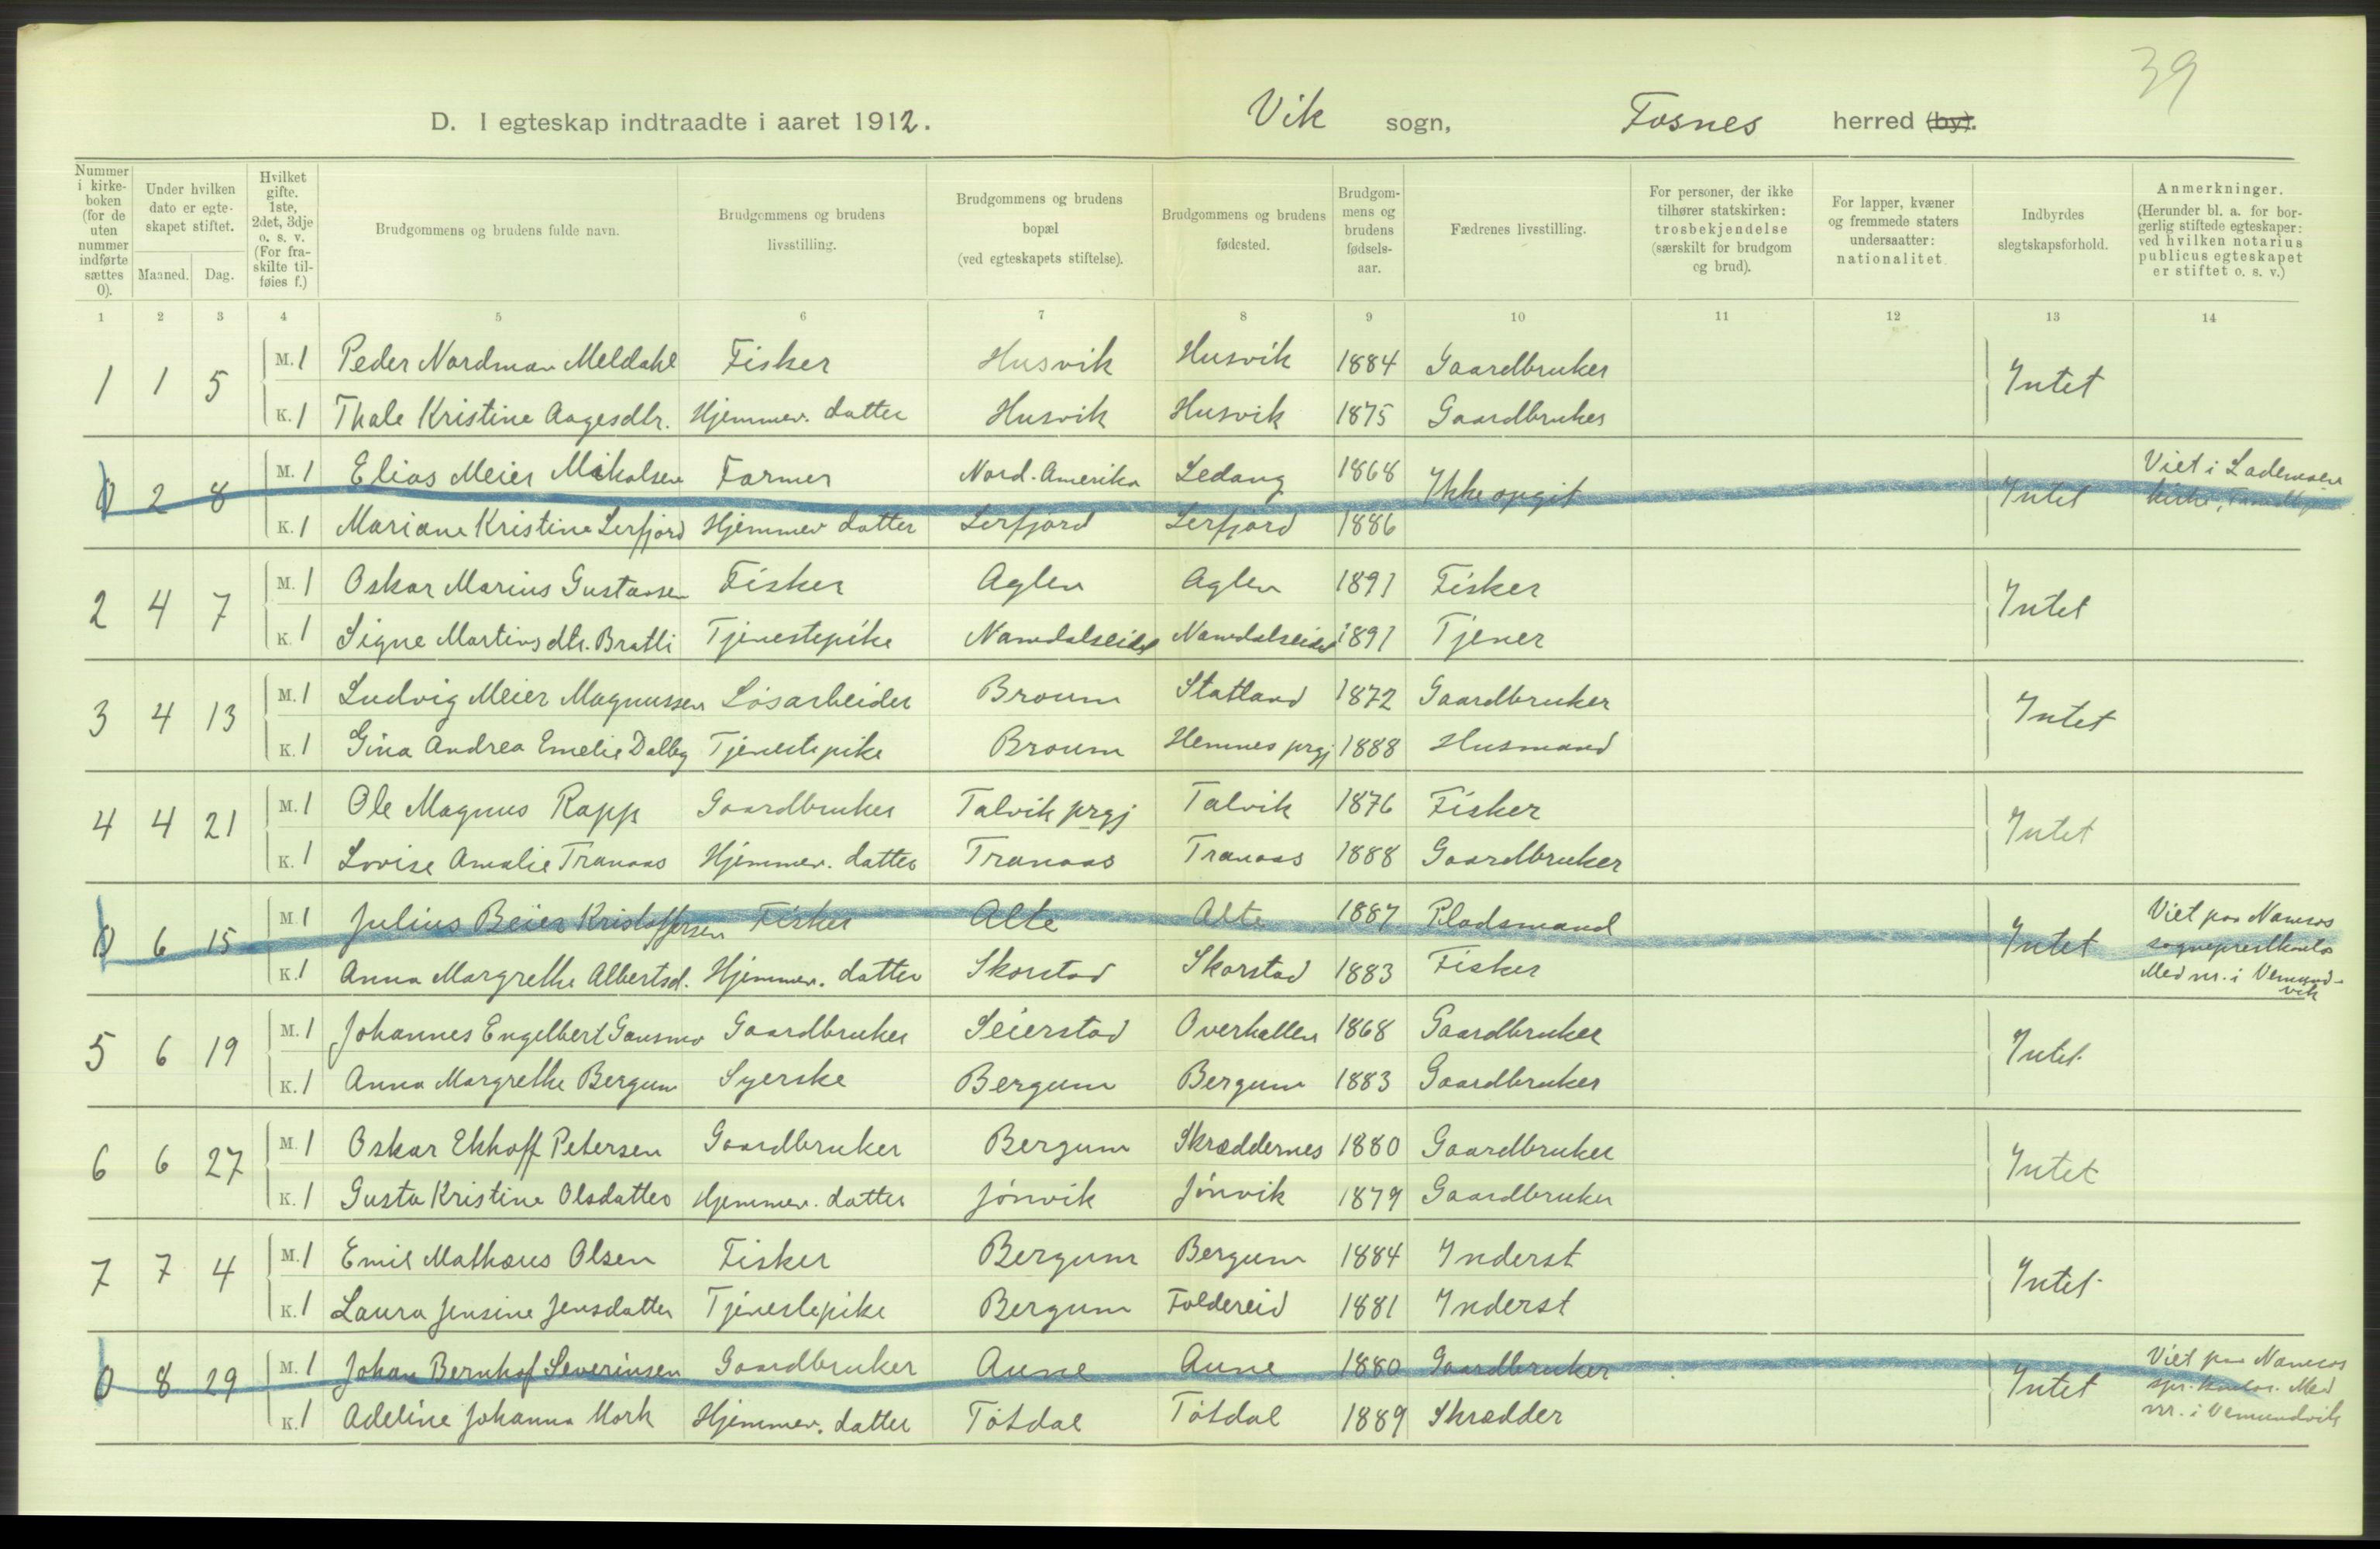 39
D. I egteskap indtraadte i aaret 1912. Vik sogn, Fosnes herred (by).
Nummer i kirke-boken (for de uten nummer indførte sættes 0).
Under hvilken dato er egte-skapet stiftet.
Maaned. Dag.
Hvilket gifte. 1ste, 2det, 3dje o. s. v. (For fra-skilte til-føies f.)
Brudgommens og brudens fulde navn.
Brudgommens og brudens livsstilling.
Brudgommens og brudens bopæl (ved egteskapets stiftelse).
Brudgommens og brudens fødested.
Brudgom-mens og brudens fødsels-aar.
Fædrenes livsstilling.
For personer, der ikke tilhører statskirken: trosbekjendelse (særskilt for brudgom og brud).
For lapper, kvæner og fremmede staters undersaatter: nationalitet.
Indbyrdes slegtskapsforhold.
Anmerkninger. (Herunder bl. a. for bor-gerlig stiftede egteskaper: ved hvilken notarius publicus egteskapet er stiftet o. s. v.)
1 2 3 4 5 6 7 8 9 10 11 12 13 14
1 1 5 M. 1 Peder Nordman Meldahl Fisker Husvik Husvik 1884 Gaardbruker Intet
K. 1 Thale Kristine Aagesdtr. Hjemmev. datter Husvik Husvik 1875 Gaardbruker
0 2 8 M. 1 Elias Meier Mikalsen Farmer Nord-Amerika Ledang 1868 Ikke opgit Intet Viet i Lademoen kirke,
K. 1 Mariane Kristine Lerfjord Hjemmev datter Lerfjord Lerfjord 1886
2 4 7 M. 1 Oskar Marius Gustavsen Fisker Aglen Aglen 1891 Fisker Intet
K. 1 Signe Martinsdtr. Bratli Tjenestepike Namdalseidet Namdalseidet 1891 Tjener
3 4 13 M. 1 Ludvig Meier Magnussen Løsarbeider Broum Statland 1872 Gaardbruker Intet
K. 1 Gina Andrea Emelie Dalby Tjenestepike Broum Hemnes prgj 1888 Husmand
4 4 21 M. 1 Ole Magnus Rapp Gaardbruker Talvik prgj Talvik 1876 Fisker Intet
K. 1 Lovise Amalie Tranaas Hjemmev. datter Tranaas Tranaas 1888 Gaardbruker
0 6 15 M. 1 Julius Beier Kristoffersen Fisker Alte Alte 1887 Pladsmand Intet Viet paa Namsos sogneprestkontor Med nr. i Vemund-vik
K. 1 Anna Margrethe Albertsd. Hjemmev. datter Skorstad Skorstad 1883 Fisker
5 6 19 M. 1 Johannes Engelbert Gansmo Gaardbruker Seierstad Overhallen 1868 Gaardbruker Intet
K. 1 Anna Margrethe Bergum Syerske Bergum Bergum 1883 Gaardbruker
6 6 27 M. 1 Oskar Ekhoff Petersen Gaardbruker Bergum Skræddernes 1880 Gaardbruker Intet
K. 1 Gusta Kristine Olsdatter Hjemmev. datter Jønvik Jønvik 1879 Gaardbruker
7 7 4 M. 1 Emil Mathæus Olsen Fisker Bergum Bergum 1884 Inderst Intet
K. 1 Laura Jensine Jensdatter Tjenestepike Bergum Foldereid 1881 Inderst
0 8 29 M. 1 Johan Bernhof Severinsen Gaardbruker Aune Aune 1880 Gaardbruker Intet Viet paa Namsos spr. kontor. Med nr. i Vemundvik
K. 1 Adeline Johanna Mork Hjemmev. datter Tøtdal Tøtdal 1889 Skrædder